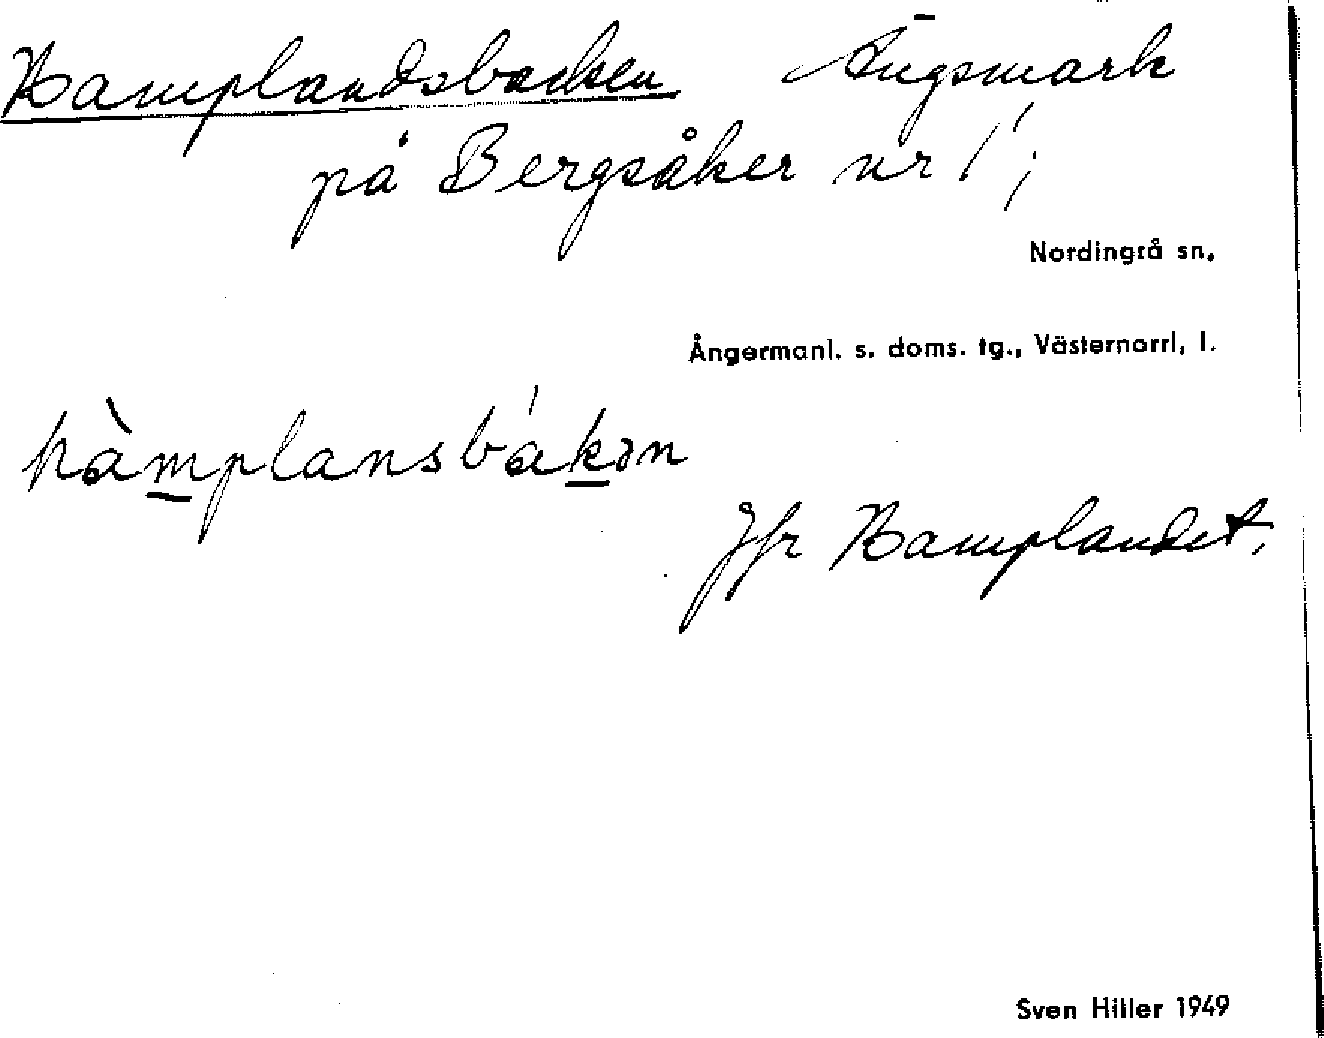 Kamplandsbacken Ängsmark
på Bergsåker nr 1;
Nordingrå sn.
Ångermanl. s. doms. tg., Västernorrl. l.
kàmplansbákən
Jfr Kamplandet.
Sven Hiller 1949